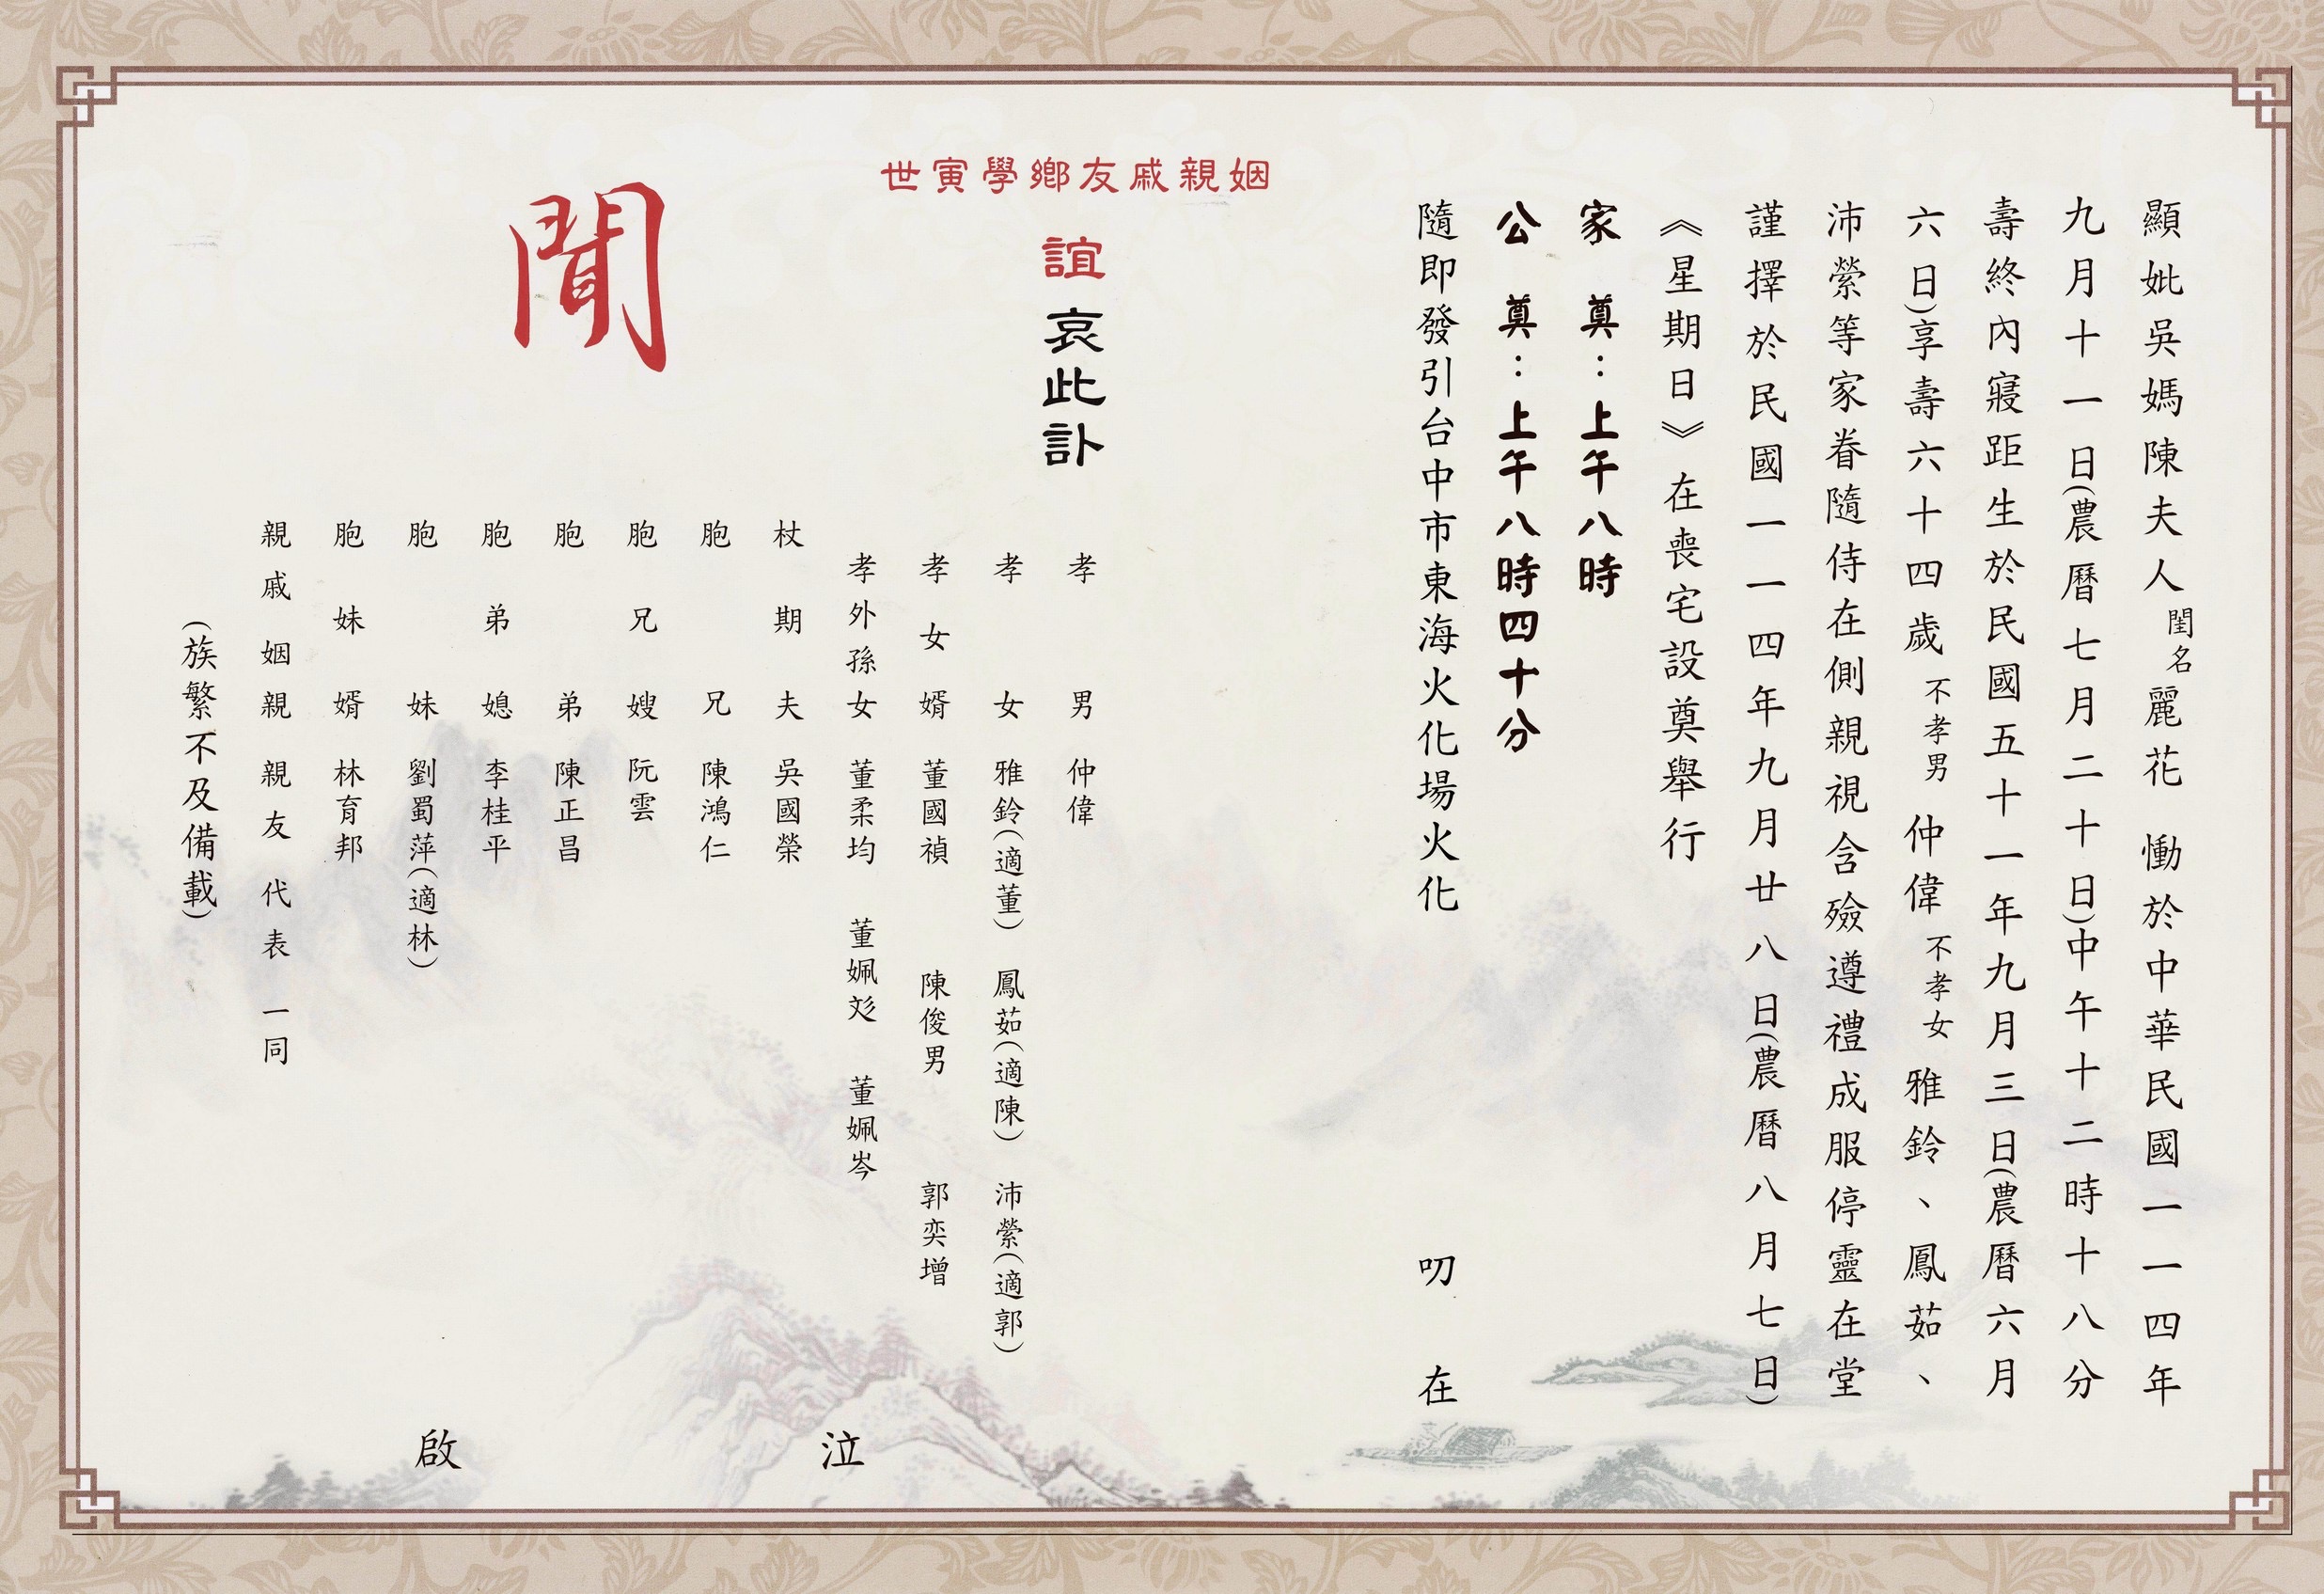 顯妣吳媽陳夫人閨名麗花 慟於中華民國一一四年
九月十一日(農曆七月二十日)中午十二時十八分
壽終內寢距生於民國五十一年九月三日(農曆六月
六日)享壽六十四歲不孝男仲偉不孝女雅鈴、鳳茹、
沛縈等家眷隨侍在側親視含殮遵禮成服停靈在堂
謹擇於民國一一四年九月廿八日(農曆八月七日)
《星期日》在喪宅設奠舉行
家 奠：上午八時
公 奠：上午八時四十分
隨即發引台中市東海火化場火化 叨 在
姻親戚友鄉學寅世
誼哀此訃
聞
孝男 仲偉
孝女 雅鈴(適董) 鳳茹(適陳) 沛縈(適郭)
孝女婿 董國禎 陳俊男 郭奕增
孝外孫女 董柔均 董姵彣 董姵岑
杖期夫 吳國榮
胞兄 陳鴻仁
胞兄嫂 阮雲
胞弟 陳正昌
胞弟媳 李桂平
胞妹 劉蜀萍(適林)
胞妹婿 林育邦
親戚姻親親友代表一同
(族繁不及備載)
泣 啟